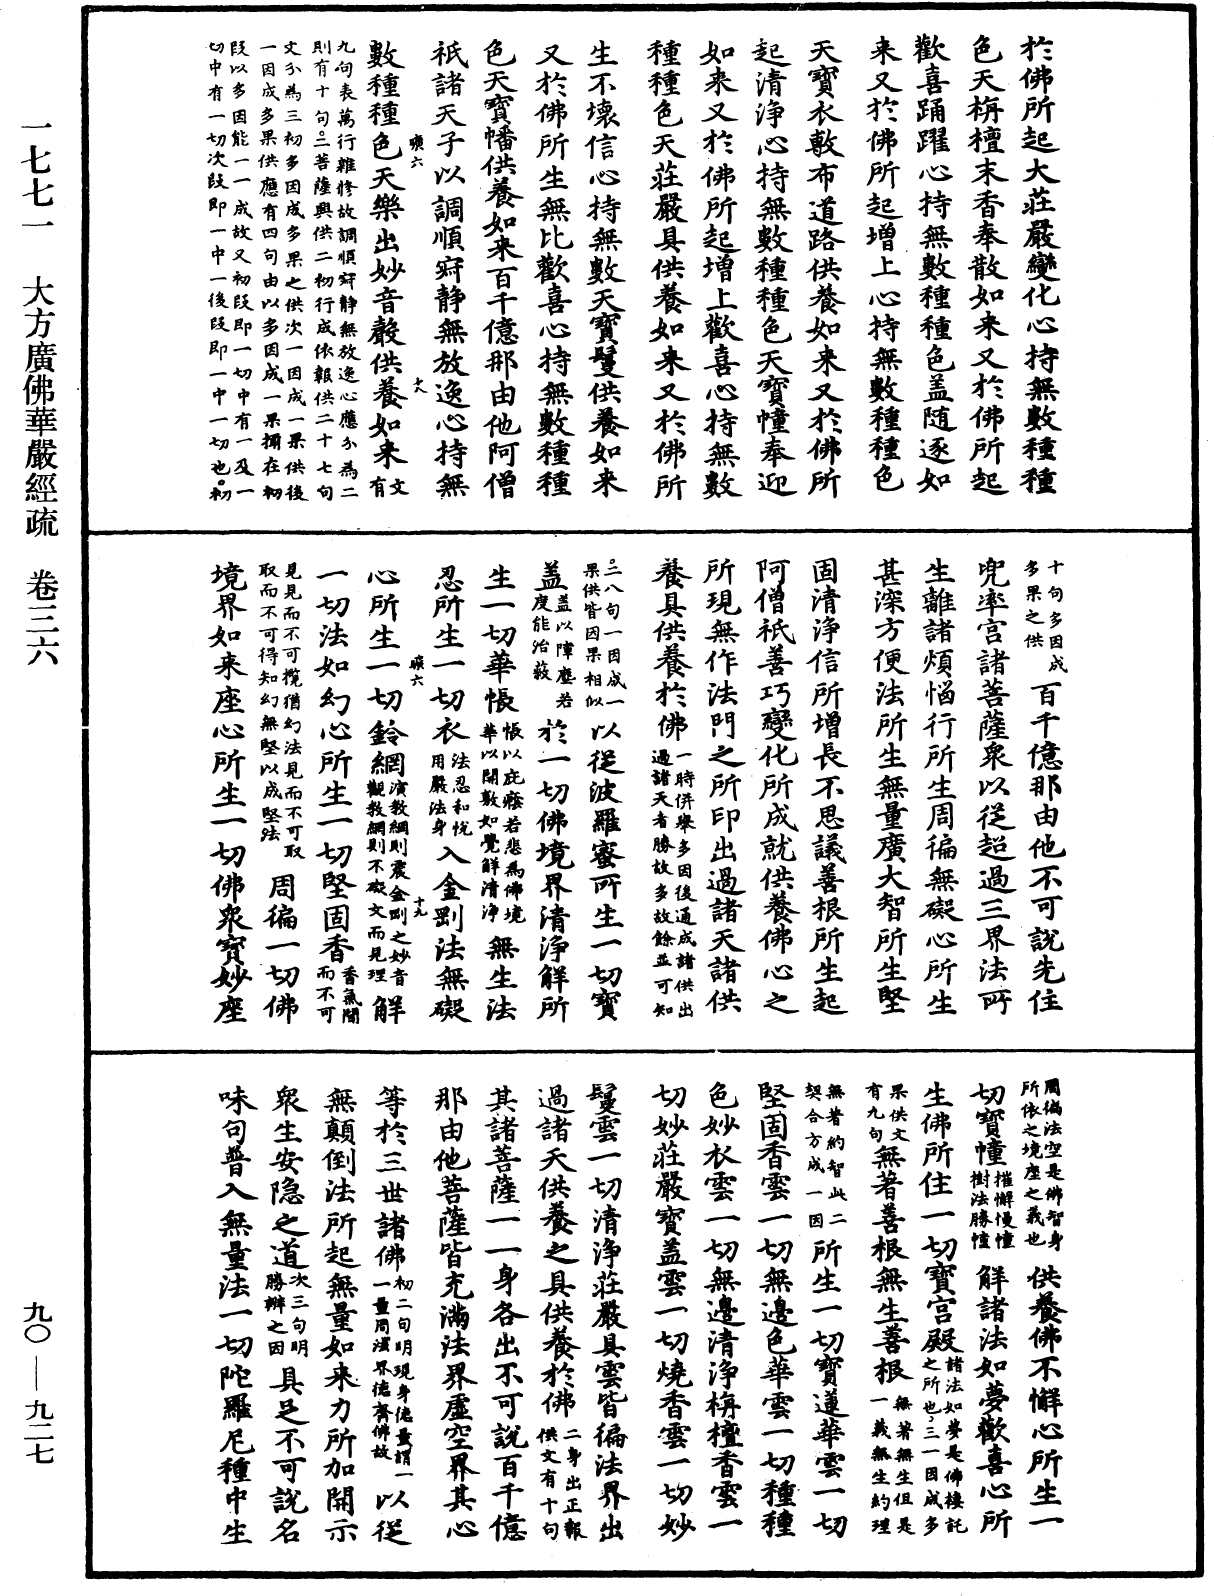 一七七一　大方廣佛華嚴經疏　卷三六
九〇—九二七
於佛所起大莊嚴變化心持無數種種
色天栴檀末香奉散如来又於佛所起
歡喜踊躍心持無數種種色盖随逐如
来又於佛所起增上心持無數種種色
天寶衣敷布道路供養如来又於佛所
起清淨心持無數種種色天寶幢奉迎
如来又於佛所起增上歡喜心持無數
種種色天莊嚴具供養如来又於佛所
生不壞信心持無數天寶鬘供養如来
又於佛所生無比歡喜心持無數種種
色天寶幡供養如来百千億那由他阿僧
祇諸天子以調順寂静無放逸心持無
曠六
十八
數種種色天樂出妙音聲供養如来文有
九句表萬行雜修故調順寂静無放逸心應分為二
則有十句○三菩薩興供二初行成依報供二十七句
文分為三初多因成多果之供次一因成一果供後
一因成多果供應有四句由以多因成一果攝在初
段以多因能一一成故又初段即一切中有一及一
切中有一切次段即一中一後段即一中一切也○初
十句多因成
多果之供
百千億那由他不可說先住
兜率宮諸菩薩衆以從超過三界法所
生離諸煩惱行所生周徧無礙心所生
甚深方便法所生無量廣大智所生堅
固清淨信所增長不思議善根所生起
阿僧祇善巧變化所成就供養佛心之
所現無作法門之所印出過諸天諸供
養具供養於佛
一時併舉多因後通成諸供出
過諸天者勝故多故餘並可知
○三八句一因成一
果供皆因果相似
以從波羅蜜所生一切寶
盖
盖以障塵若
度能治蔽
於一切佛境界清淨解所
生一切華帳
帳以庇癊若悲為佛境
華以開敷如覺解清淨
無生法
忍所生一切衣
法忍和悅
用嚴法身
入金剛法無礙
曠六
十九
心所生一切鈴網
演教網則震金剛之妙音
觀教網則不礙文而見理
解
一切法如幻心所生一切堅固香
香氣聞
而不可
見見而不可攬猶幻法見而不可取
取而不可得知幻無堅以成堅法
周徧一切佛
境界如来座心所生一切佛衆寶妙座
周徧法空是佛智身
所依之境座之義也
供養佛不懈心所生一
切寶幢
摧懈慢幢
樹法勝幢
解諸法如夢歡喜心所
生佛所住一切寶宮殿
諸法如夢是佛棲託
之所也○三一因成多
果供文
有九句
無著善根無生善根
無著無生但是
一義無生約理
無著約智此二
契合方成一因
所生一切寶蓮華雲一切
堅固香雲一切無邊色華雲一切種種
色妙衣雲一切無邊清淨栴檀香雲一
切妙莊嚴寶盖雲一切燒香雲一切妙
鬘雲一切清淨莊嚴具雲皆徧法界出
過諸天供養之具供養於佛
二身出正報
供文有十句
其諸菩薩一一身各出不可說百千億
那由他菩薩皆充滿法界虛空界其心
等於三世諸佛
初二句明現身德量謂一
一量周法界德齊佛故
以從
無顛倒法所起無量如来力所加開示
衆生安隐之道
次三句明
勝辦之因
具足不可說名
味句普入無量法一切陀羅尼種中生